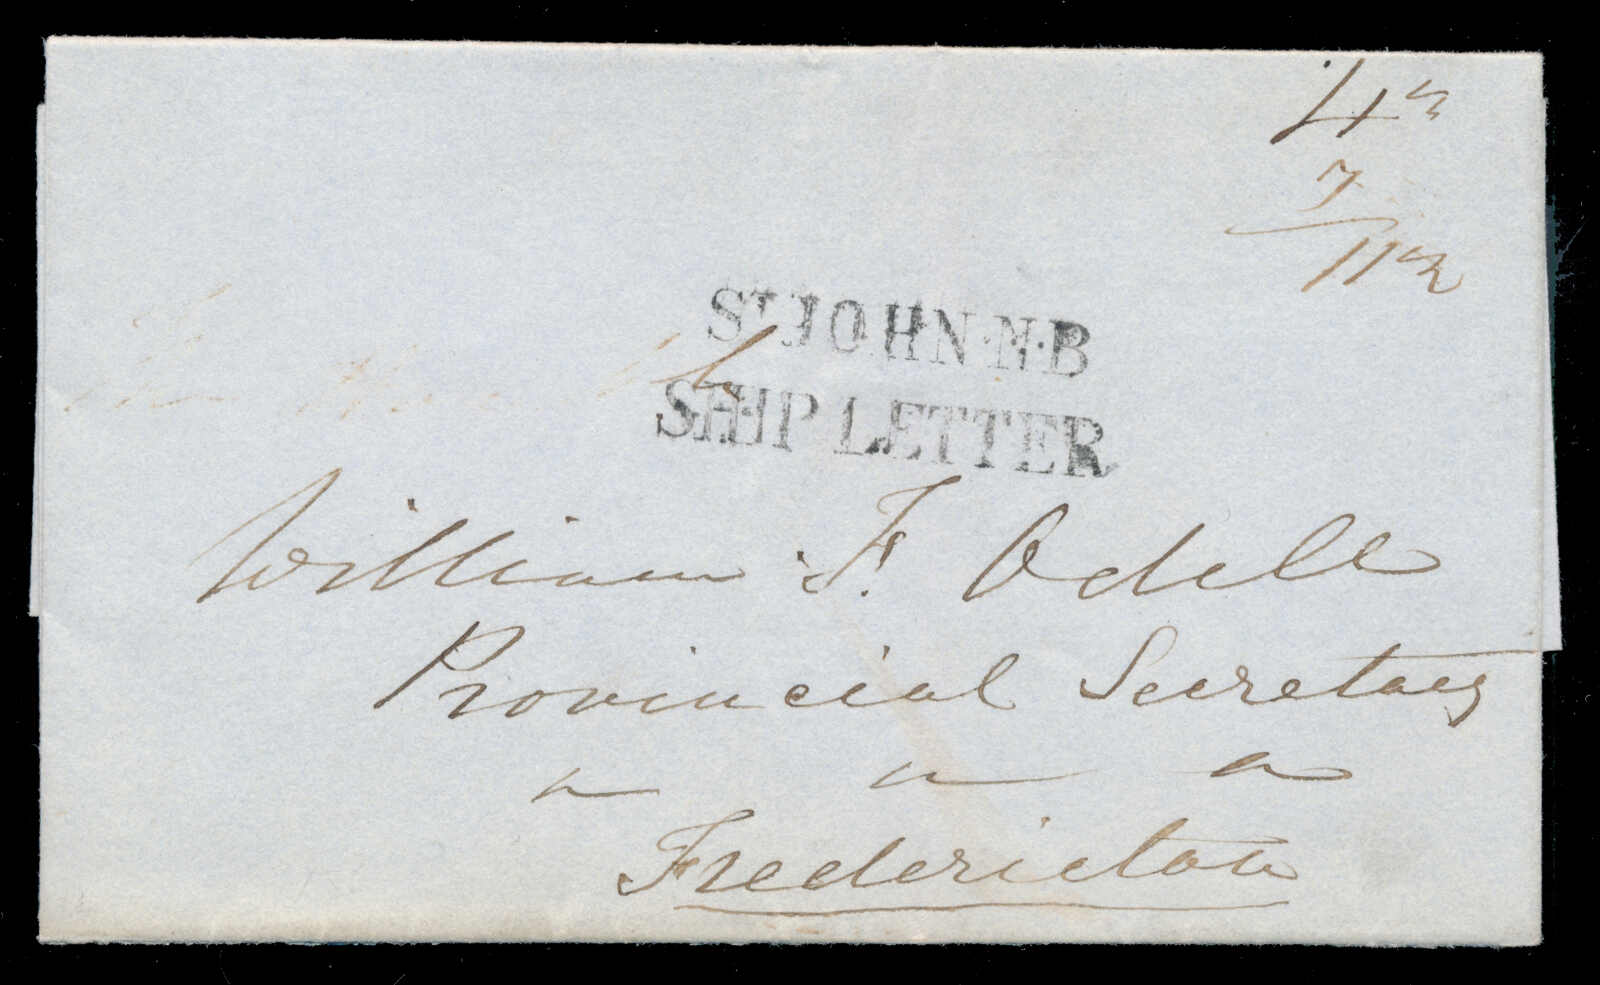 4½
7
11½
St JOHN·N·B
SHIP LETTER
William F. Odell
Provincial Secretary
Fredericton